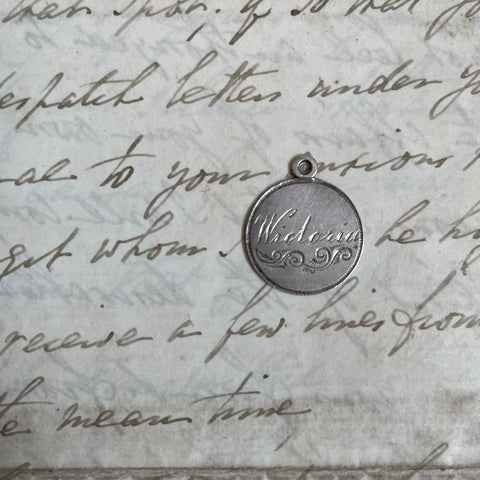 that spot, if so that yo
despatch letters under yo
al to your anxious
Wictoria
get whom he
receive a few lines from
the mean time